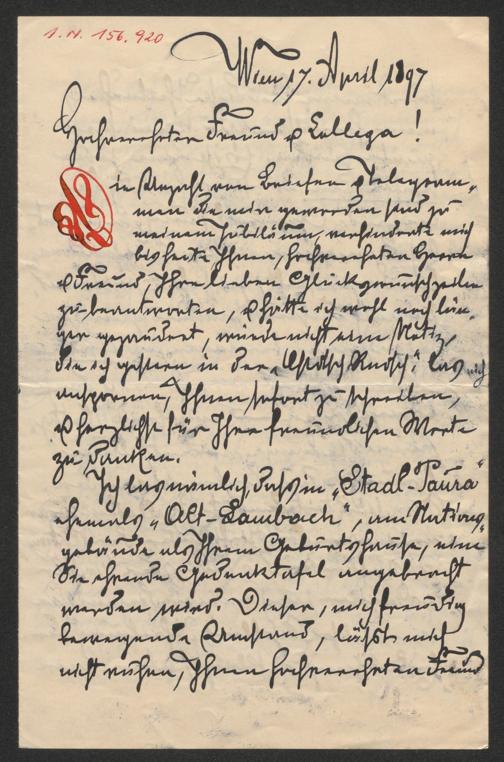 I. N. 156.920
Wien, 17. April 1897
Hochverehrter Freund & Collega!
Die Anzahl von Briefen & Telegram-
men die mir geworden sind zu
meinem Jubiläum, verhinderte mich
bis heute Ihnen, hochverehrter Herr
& Freund, Ihre lieben Glückwunschzeilen
zu beantworten, & hätte ich wohl noch län-
ger gezaudert, würde nicht eine Notiz,
die ich gestern in der „Ostdtsch Rndsch." las, mich
anspornen, Ihnen sofort zu schreiben,
& herzlichst für Ihre freundlichen Worte
zu danken.
Ich las nämlich, dass in „Stadl-Paura"
ehemals „Alt-Lambach", am
gebäude als Ihrem Geburtshause, eine
Sie ehrende Gedenktafel angebracht
werden wird. Dieser, mich freudig
bewegende Umstand, lässt mich
nicht ruhen, Ihnen hochverehrter Freund